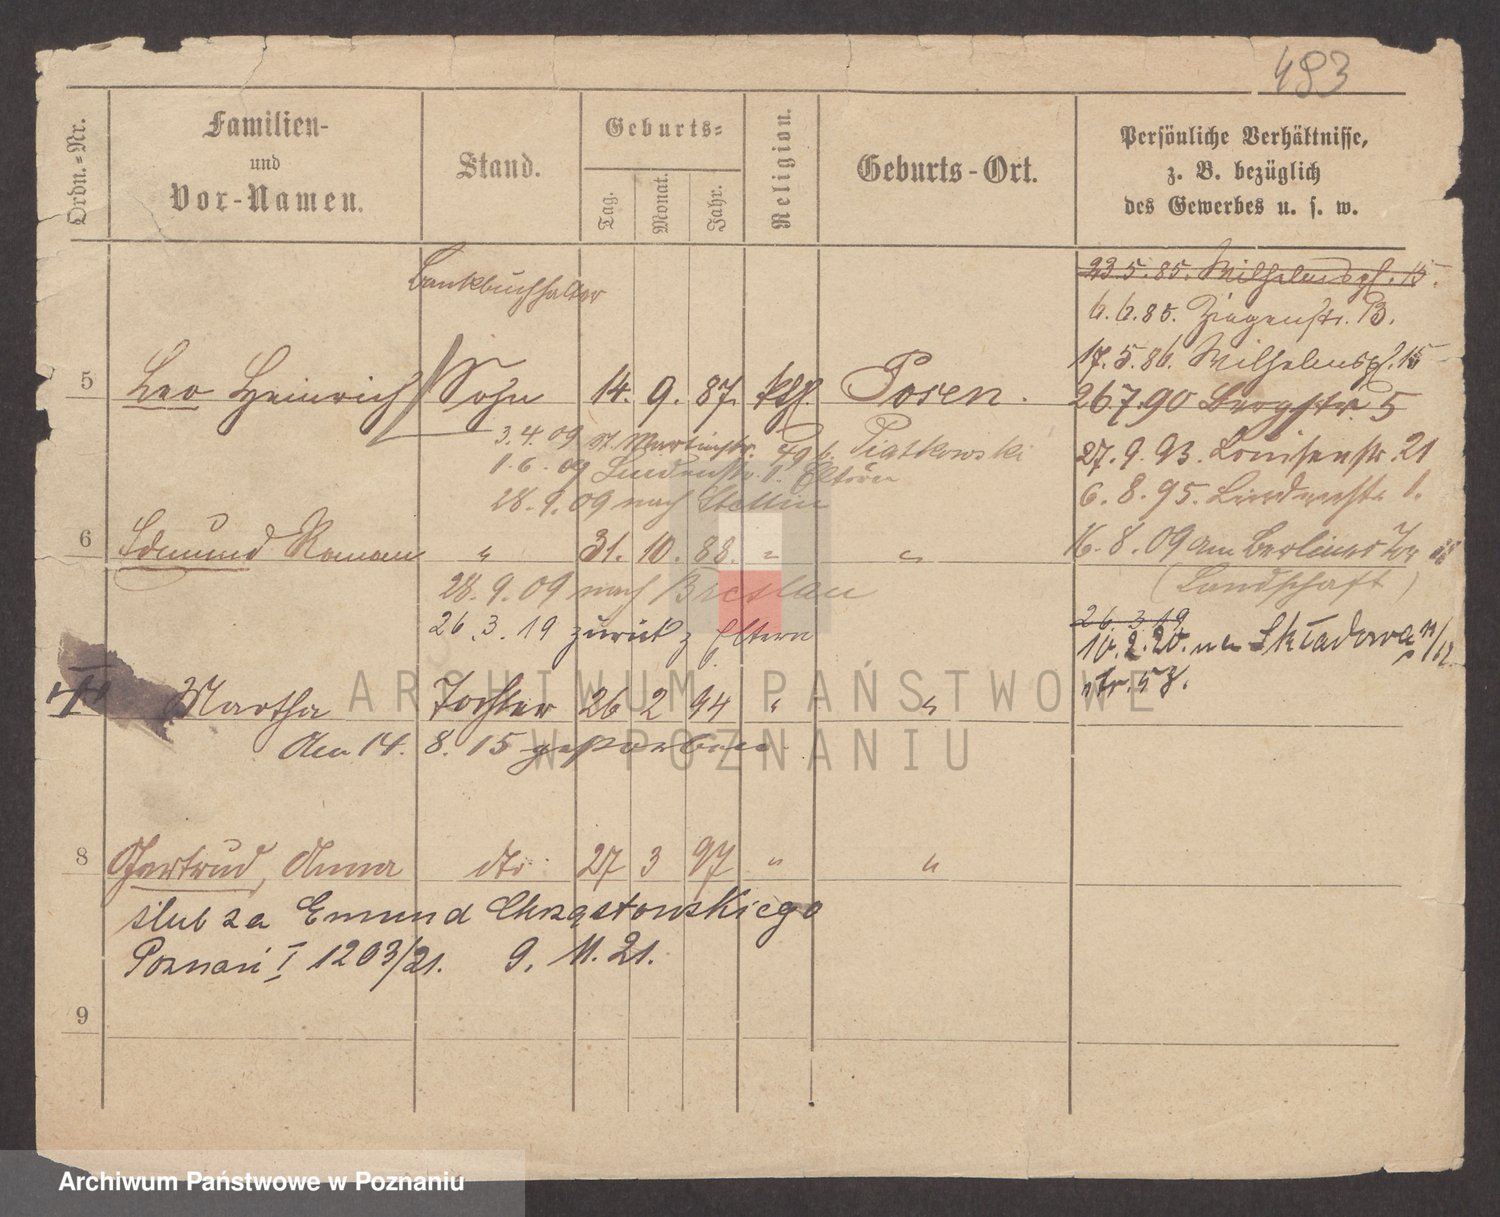 483
Ordn.=Nr.
Familien-
und
Vor-Namen.
Stand.
Geburts=
Tag.
Monat.
Jahr.
Religion.
Geburts-Ort.
Persönliche Verhältnisse,
z. B. bezüglich
des Gewerbes u. s. w.
Bankbuchhalter
23.5.85. Wilhelmspl. 15.
6.6.85. Ziegenstr. 13.
17.5.86. Wilhelmspl. 15
5 Leo Heinrich Sohn 14. 9. 87. kth. Posen.
26.7.90 Bergstr. 5
3.4.09 St. Martinstr. b. Piatkowski
27.9.93. Louisenstr. 21
1.6.09 Lindenstr. 1. Eltern
6.8.95. Lindenstr. 1.
28.9.09 nach Stettin
6 Edmund Roman " 31. 10. 88. " "
16.8.09 Am Berliner Tor
(Landschaft)
28.9.09 nach Breslau
26.3.19 zurück z. Eltern
26.3.19
10.2.20. Składowa 11/12
Martha Tochter 26 2 94 " "
Am 14. 8. 15 gestorben
8 Gertrud, Anna dto 27 3 97 " "
ślub za Emund Chrząstowskiego
Poznań I 1203/21. 9. 11. 21.
9
ARCHIWUM PAŃSTWOWE
W POZNANIU
Archiwum Państwowe w Poznaniu